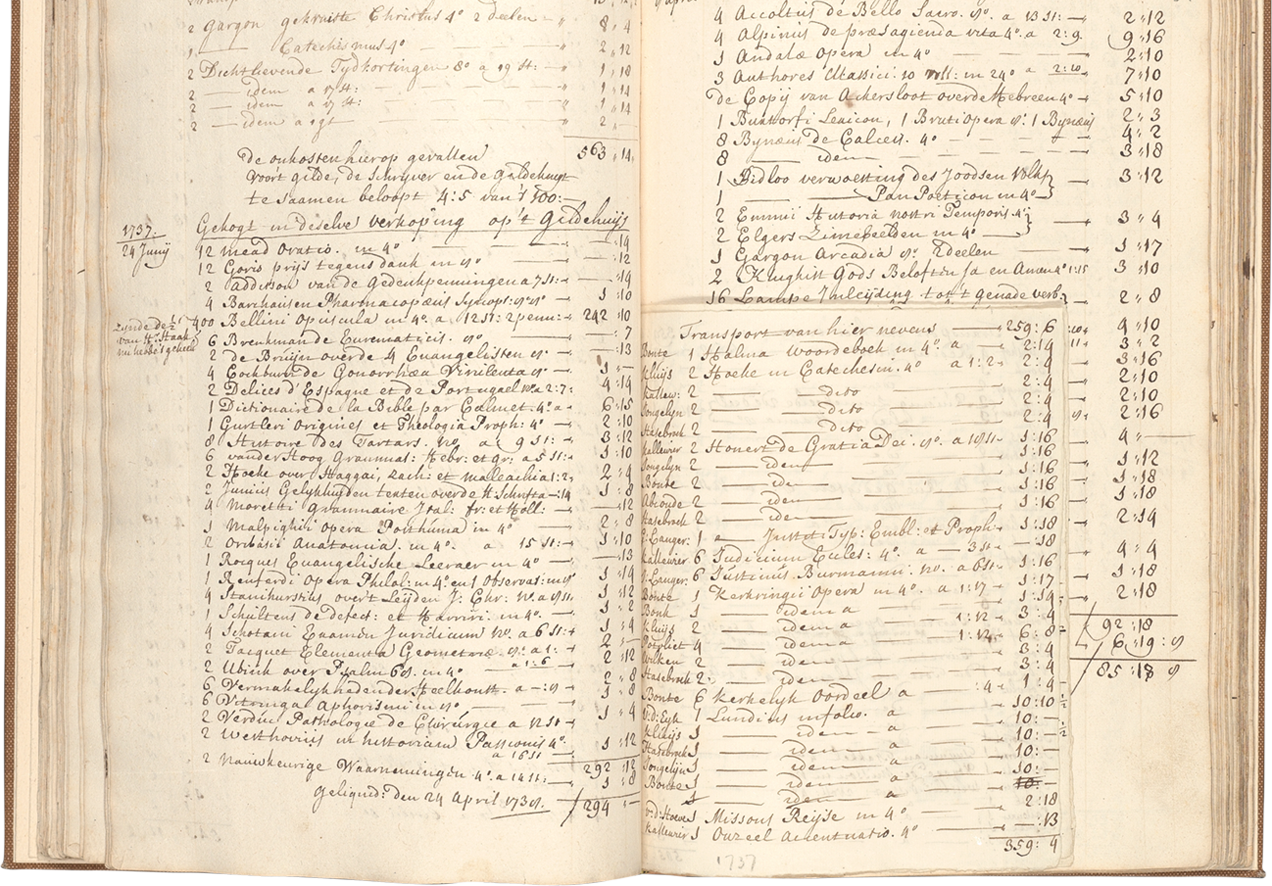 2 Gargon gekruiste Christus 4o 2 deelen — " 8 " 4
1 — Catechismus 4o — — — " 2 " 12
2 Dichtlievende Tydkortingen 8o a 19 st: — " 1 " 18
2 — idem a 17 st: " 1 " 14
2 — idem a 17 st: " 1 " 14
2 — idem a " 2 " -
563 " 14
De onkosten hierop gevallen
voor't gilde, de schrijver en de gildeknegt
te saamen beloopt 4:5 van't 100:—
1737: Gekogt in deselve verkoping op 't Gildehuijs
24 Junij 12 Mead Oratio. in 4o — — :14
12 Goris prijs tegens dank in 8o — — :12
2 Addisson van de Gedenkpenningen a 7 st: — :14
4 Barchuisen Pharmacopæus Synopt: 8o — 1 :10
400 Bellini Opuscula in 4o. a 12 st: 2 penn: — 242 :10
zynde de
van H: Haak
6 Brenkman de Eurematicis. 8o — — : 7
2 de Bruijn over de 4 Euangelisten 8o — — :13
4 Cockburn de Gonorrhæa Virulenta 8o — 1 " —
2 Delices d'Espagne et de Portugael a 2:7: 4 :14
1 Dictionaire de la Bible par Calmet. 4o. a — 6 :15
1 Gurtleri Origines et Theologia Proph: 4o — 2 :10
8 Histoire des Tartars. a 9 st: — 3 :12
6 vander Hoog Grammat: Hebr: et Gr: a 5 st: — 1 :10
2 Hoeke over Haggai, Zach: et Malleachi a 1:2: 2 : 4
2 Junius Gelykluijden texten over de H: Schrift a —:14 1 : 8
4 Moretti Grammaire Ital: fr: et Holl: — — :12
1 Malpighii Opera Posthuma in 4o — 2 : 8
2 Oribasii Anatomia. in 4o. a 15 st: — 1 :10
1 Rocques Euangelische Leeraer in 4o — — :13
1 Renferdi Opera Philol: in 4o en 1 Observat: in 8o 1 :14
4 Stanihurstius over't Leijden J: Chr: a st: 1 :12
1 Schultens de defect: et Hariri in 4o. — 1 : 2
4 Schotani Examen Juridicum a 6 st: — 1 : 4
2 Tacquet Elementa Geometriæ. 8o. a 1: — 2 : —
2 Ubink over Psalm 68. in 4o a 1:6 — 2 :12
6 Vermakelykheden der Heelkonst. a —:8 — 2 : 8
6 Aphorismi in 8o — 1 : 8
2 Verduc Pathologie de Chirurgie a 12 st — 1 : 4
2 Westhovius in historiam Passionis 4o.
a 16 st — 1 :12
292 :12
2 Nauwkeurige Waarnemingen 4o. a 14 st: — 1 : 8
Geliquid: den 24 April 1738. 294 " —
4 Accoltus de Bello Sacro. 8o. a 13 st: — 2 " 12
4 Alpinus de præsagienda vita 4o. a 2:9. 9 :16
1 Andalæ Opera in 4o — — — 2 :10
3 Authores Classici 10 voll: in 24o a 2:10 — 7 :10
de Copij van Ackersloot over de Hebreen 4o — 5 :10
1 Buxtorfi Lexicon, 1 Bruti Opera 8o: 1 Bynæus 2 : 3
8 Bynæus de Calceis. 4o — — — 4 : 2
8 — idem — — — 3 :18
1 Bidloo verwoesting des Joodsen Volks — 3 :12
1 — Pan Poeticon in 4o —
2 Emmii Historia nostri Temporis 4o — 3 : 4
2 Elgers Zinnebeelden in 4o —
1 Gargon Arcadia 8o. 2 deelen — 1 :17
2 Gods Beloften Ja en Amen 4o 1:15 3 :10
16 Lampe Inleijding tot 't genade verb: — 2 : 8
Transport van hier nevens — 259 : 6
Bonte 1 Halma Woordeboek in 4o. a — 2:14
Kluijs 2 Hoeke in Catechesin. 4o a 1:2 — 2 : 4
Kallew: 2 — dito — 2 : 4
Jongelyn 2 — dito — 2 : 4
Hasebroek 2 — dito — 2 : 4
Kallewier 2 Honert de Gratia Dei. 8o. a 18 st — 1:16
Jongelyn 2 — idem — 1:16
Bonte 2 — idem — 1:16
Abcoude 2 — idem — 1:16
Hasebroek 2 — idem — 1:16
Langer: 1 a — Instit: Typ: Embl: et Proph — 1:18
Kallewier 6 Judicium Eccles: 4o. a — 3 st — —:18
Langer: 6 Justinus Burmanni. a 6 st — 1:16
Bonte 1 Kerkringii Opera in 4o. a 1:17 — 1:17
Bonk 1 — idem a — 1:14
Kluijs 2 — idem a 1:12 — 3: 4
Potvliet 4 — idem a 1:12 — 6: 8
Wilken 2 — idem — 3: 4
Hasebroek 2: — idem — 3: 4
Bonte 6 Kerkelyk Oordeel a :4 — 1: 4
v:d: Eyk 1 Lundius in folio. a — 10:10
Kluijs 1 — idem — a — 10:—
Hasebroek 1 — idem a — 10:—
Jongelyn 1 — idem a — 10:—
Bonte 1 — idem a — 10:—
1 — idem a — 10:
v:d: Hoeve 1 Missons Reijse in 4o — 2:18
Kallewier 1 Ouzeel Accentuatio. 4o — —:13
359: 4
1737
4 :10
3 : 2
3 :16
2 :10
2 :10
2 :16
4 " —
1 :12
1 :18
1 :18
2 :14
4 : 4
1 :18
2 :18
92 :18
6 :19 : 8
85 :18 8